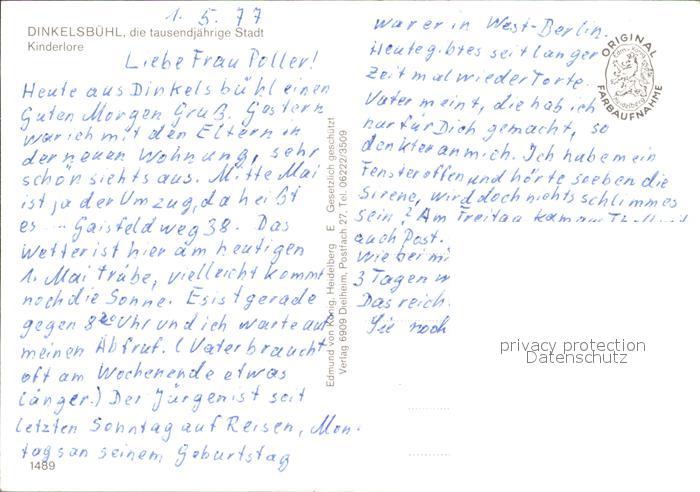 1. 5. 77
DINKELSBÜHL, die tausendjährige Stadt
Kinderlore
Liebe Frau Poller!
Heute aus Dinkelsbühl einen
Guten Morgen Gruß. Gestern
war ich mit den Eltern in
der neuen Wohnung, sehr
schön siehts aus. Mitte Mai
ist ja der Umzug, da heißt
es ... Gaisfeldweg 38. Das
Wetter ist hier am heutigen
1. Mai trübe, vielleicht kommt
noch die Sonne. Es ist gerade
gegen 8 Uhr und ich warte auf
meinen Abruf. (Vater braucht
oft am Wochenende etwas
länger.) Der Jürgen ist seit
letzten Sonntag auf Reisen, Mon-
tags an seinem Geburtstag
1489
Edmund von König, Heidelberg E Gesetzlich geschützt
Verlag 6909 Dielheim, Postfach 27, Tel. 06222/3509
war er in West-Berlin.
Heute gibt es seit langer
Zeit mal wieder Torte.
Vater meint, die hab ich
nur für Dich gemacht, so
denkt er an mich. Ich hab mein
Fenster offen und hörte soeben die
Sirene, wird doch nichts schlimmes
sein? Am Freitag kam
auch Post.
wie bei mi
3 Tagen
Das reich
Sie noch
ORIGINAL
FARBAUFNAHME
privacy protection
Datenschutz